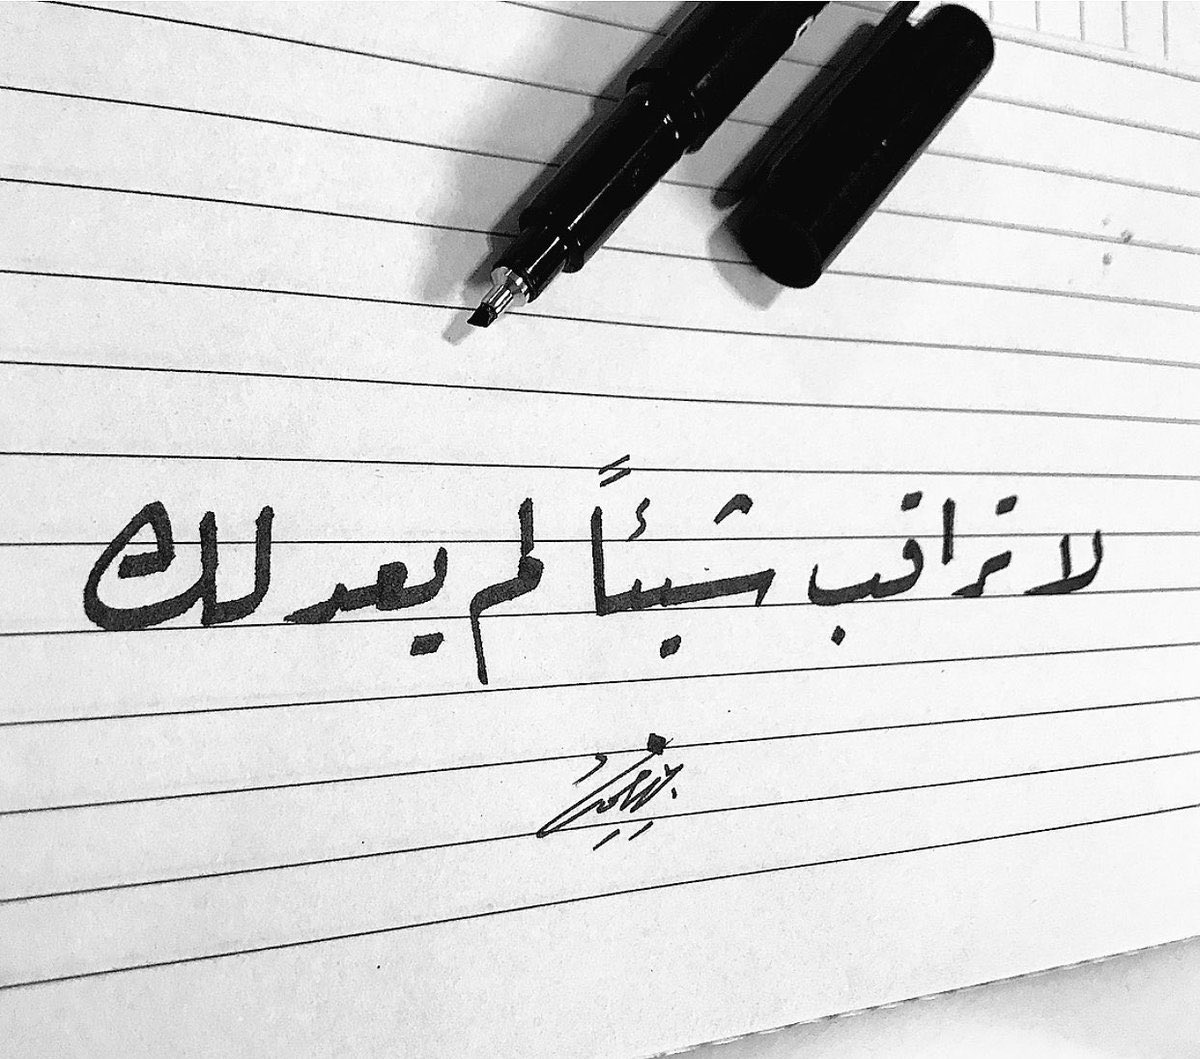 لا تراقب شيئاً لم يعد لك